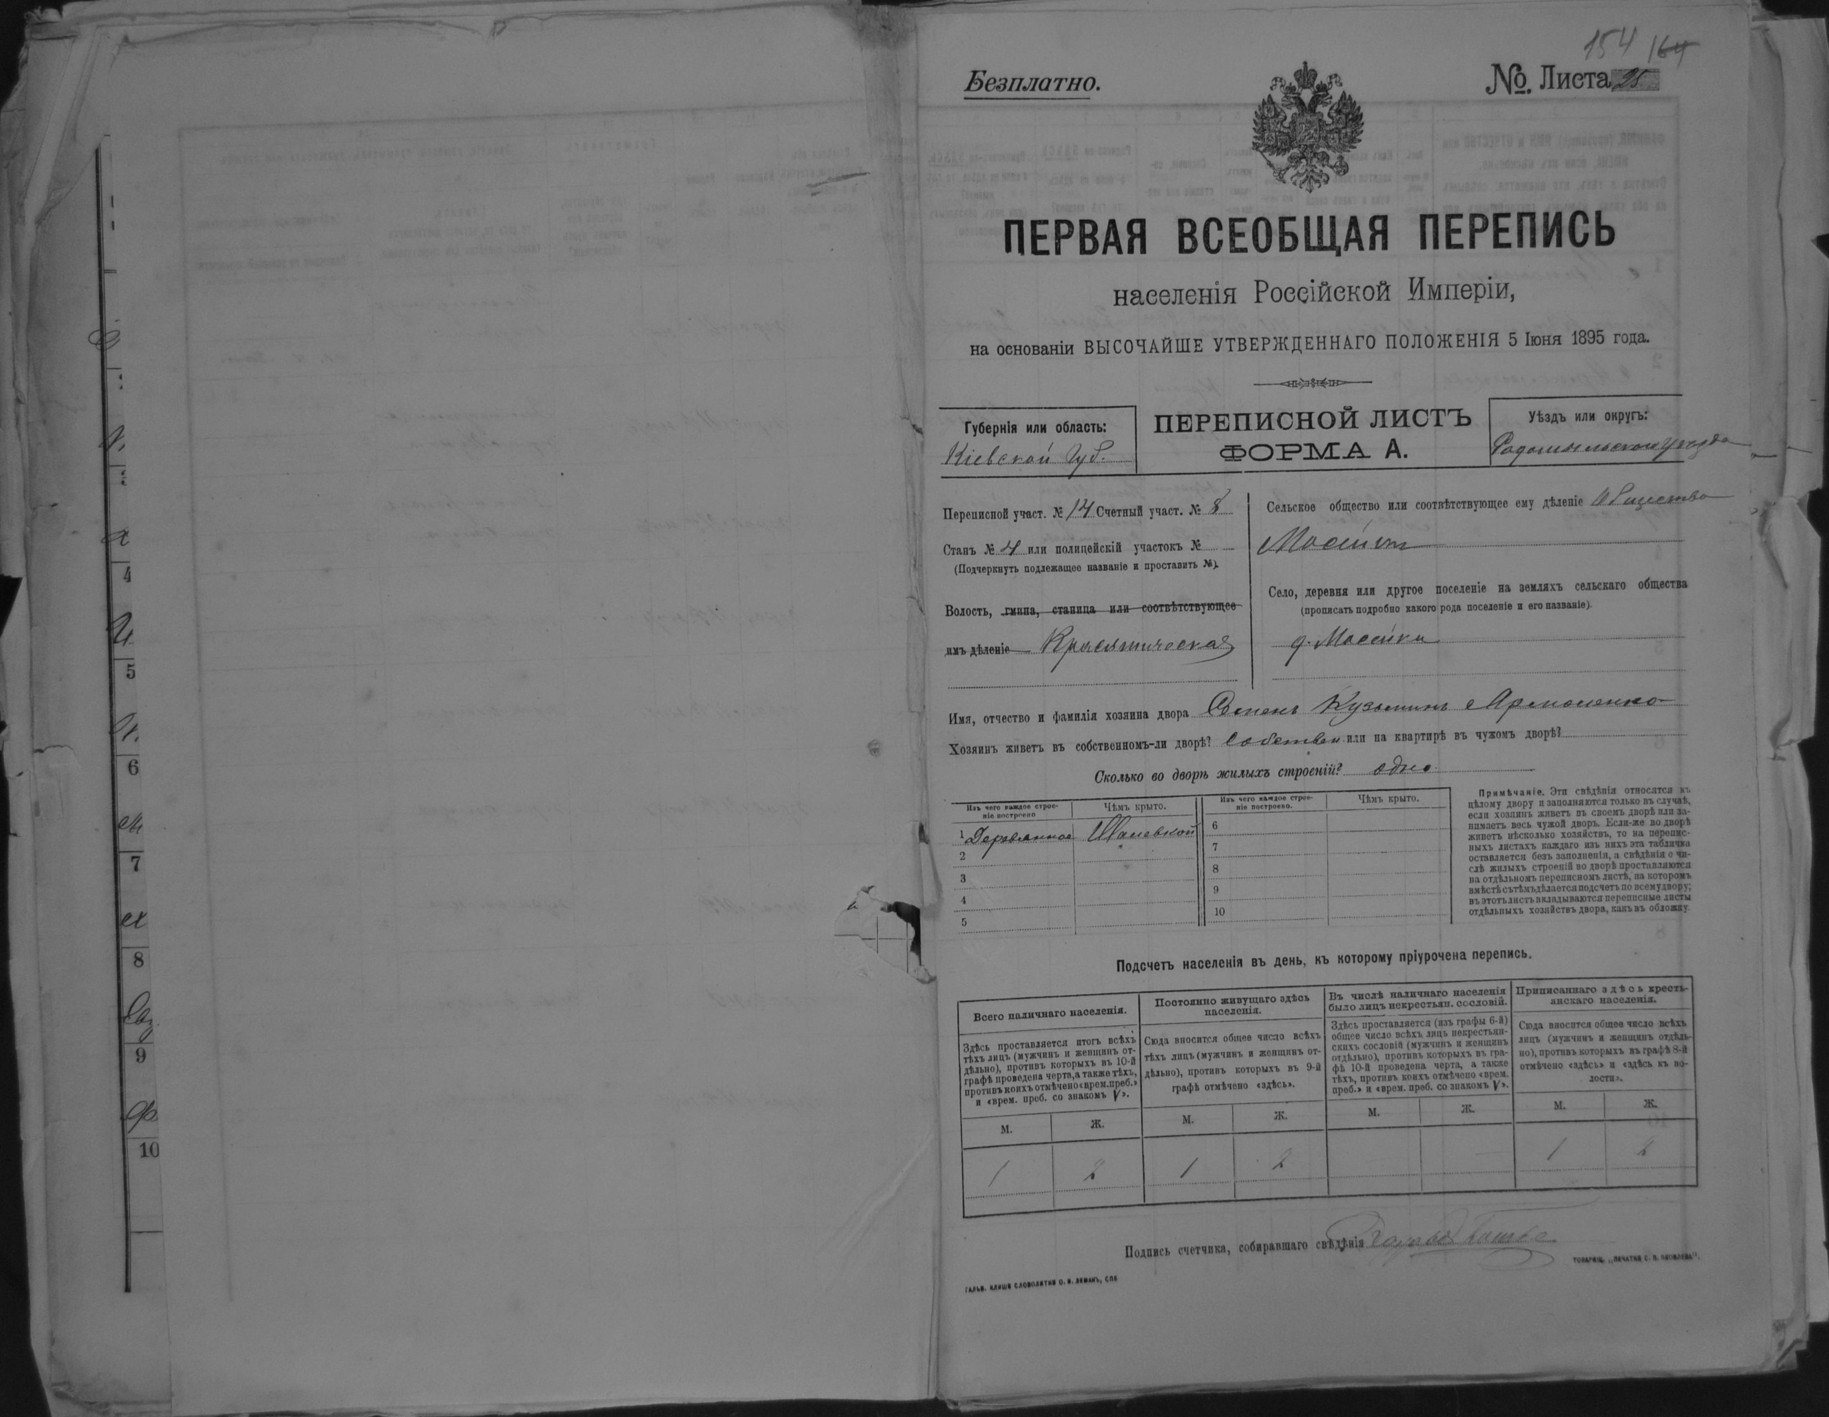 154 164
Безплатно.
№ Листа 25
ПЕРВАЯ ВСЕОБЩАЯ ПЕРЕПИСЬ
населенія Россійской Имперіи,
на основаніи ВЫСОЧАЙШЕ УТВЕРЖДЕННАГО ПОЛОЖЕНІЯ 5 Іюня 1895 года.
Губернія или область:
Кіевской Губ.
ПЕРЕПИСНОЙ ЛИСТЪ
ФОРМА А.
Уѣздъ или округъ:
Радомысльскаго уѣзда
Переписной участ. № 14 Счетный участ. № 8
Станъ № 4 или полицейскій участокъ №
(Подчеркнуть подлежащее названіе и проставить №).
Волость, гмина, станица или соотвѣтствующее
имъ дѣленіе Красятическая
Сельское общество или соотвѣтствующее ему дѣленіе Общество
Село, деревня или другое поселеніе на земляхъ сельскаго общества
(прописать подробно какого рода поселеніе и его названіе).
д. Масейки
Имя, отчество и фамилія хозяина двора Семенъ Кузьминъ Ярмоленко
Хозяинъ живетъ въ собственномъ-ли дворѣ? собствен или на квартирѣ въ чужомъ дворѣ?
Сколько во дворѣ жилыхъ строеній? одно
Изъ чего каждое строе-
ніе построено
Чѣмъ крыто.
1 Деревянное
2
3
4
5
Изъ чего каждое строе-
ніе построено.
Чѣмъ крыто.
6
7
8
9
10
Примѣчаніе. Эти свѣдѣнія относятся къ
цѣлому двору и заполняются только въ случаѣ,
если хозяинъ живетъ въ своемъ дворѣ или за-
нимаетъ весь чужой дворъ. Если-же во дворѣ
живетъ нѣсколько хозяйствъ, то на перепис-
ныхъ листахъ каждаго изъ нихъ эта табличка
оставляется безъ заполненія, а свѣдѣнія о чи-
слѣ жилыхъ строеній во дворѣ проставляются
на отдѣльномъ переписномъ листѣ, на которомъ
вмѣстѣ съ тѣмъ дѣлается подсчетъ по всему двору;
въ этотъ листъ вкладываются переписные листы
отдѣльныхъ хозяйствъ двора, какъ въ обложку.
Подсчетъ населенія въ день, къ которому пріурочена перепись.
Всего наличнаго населенія.
Здѣсь проставляется итогъ всѣхъ
тѣхъ лицъ (мужчинъ и женщинъ от-
дѣльно), противъ которыхъ въ 10-й
графѣ проведена черта, а также тѣхъ,
противъ коихъ отмѣчено «врем. преб.»
и «врем. преб. со знакомъ V».
М.
Ж.
1
2
Постоянно живущаго здѣсь
населенія.
Сюда вносится общее число всѣхъ
тѣхъ лицъ (мужчинъ и женщинъ от-
дѣльно), противъ которыхъ въ 9-й
графѣ отмѣчено «здѣсь».
М.
Ж.
1
2
Въ числѣ наличнаго населенія
было лицъ некрестьян. сословій.
Здѣсь проставляется (изъ графы 6-й)
общее число всѣхъ лицъ некрестьян-
скихъ сословій (мужчинъ и женщинъ
отдѣльно), противъ которыхъ въ гра-
фѣ 10-й проведена черта, а также
тѣхъ, противъ коихъ отмѣчено «врем.
преб.» и «врем. преб. со знакомъ V».
М.
Ж.
Приписаннаго здѣсь кресть-
янскаго населенія.
Сюда вносится общее число всѣхъ
лицъ (мужчинъ и женщинъ отдѣль-
но), противъ которыхъ въ графѣ 8-й
отмѣчено «здѣсь» и «здѣсь въ во-
лости».
М.
Ж.
1
2
Подпись счетчика, собиравшаго свѣдѣнія
ГАЛЬВ. КЛИШЕ СЛОВОЛИТНИ О. И. ЛЕМАНЪ, СПБ
ТОВАРИЩ. „ПЕЧАТНЯ С. П. ЯКОВЛЕВА".
4
5
6
7
8
9
10